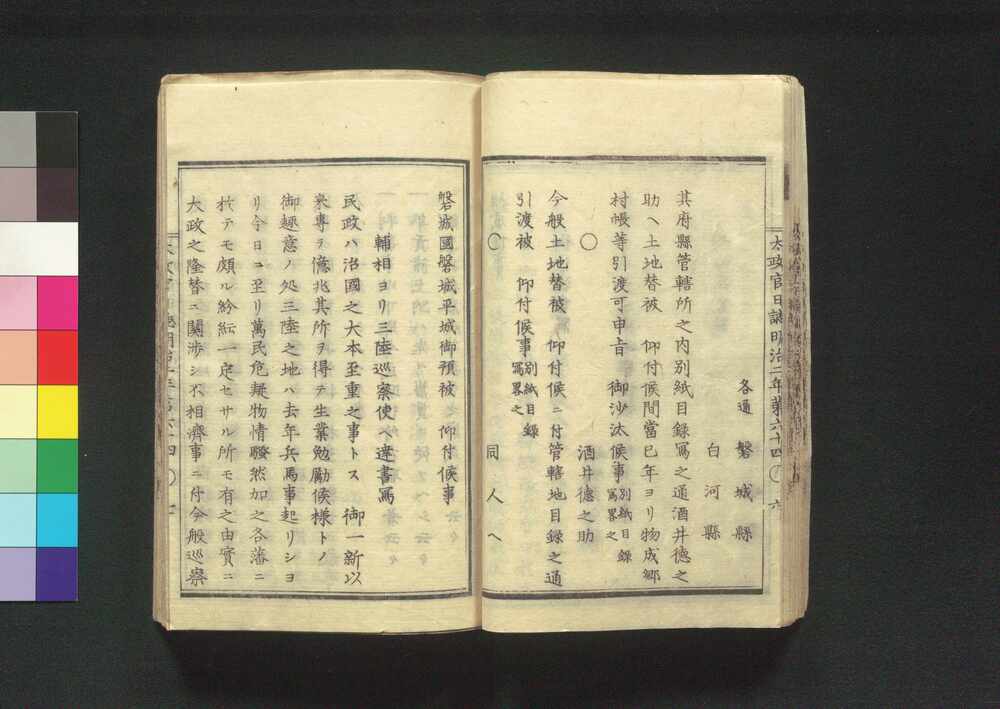 太政官日誌明治二年第六十四〇六
各通　磐城縣
白河縣
其府縣管轄所之内別紙目録寫之通酒井德之
助ヘ土地替被　仰付候間當巳年ヨリ物成郷
村帳等引渡可申旨　御沙汰候事別紙目録寫畧之
〇　酒井德之助
今般土地替被　仰付候ニ付管轄地目録之通
引渡被　仰付候事別紙目録寫畧之
同人ヘ
磐城國磐城平城御預被　仰付候事
輔相ヨリ三陸巡察使ヘ達書寫
民政ハ治國之大本至重之事トス　御一新以
來專ラ億兆其所ヲ得テ生業勉勵候様トノ
御趣意ノ処三陸之地ハ去年兵馬事起リシヨ
リ今日ニ至リ萬民危疑物情騒然加之各藩ニ
於テモ頗ル紛紜一定セサル所モ有之由實ニ
大政之隆替ニ關渉シ不相濟事ニ付今般巡察